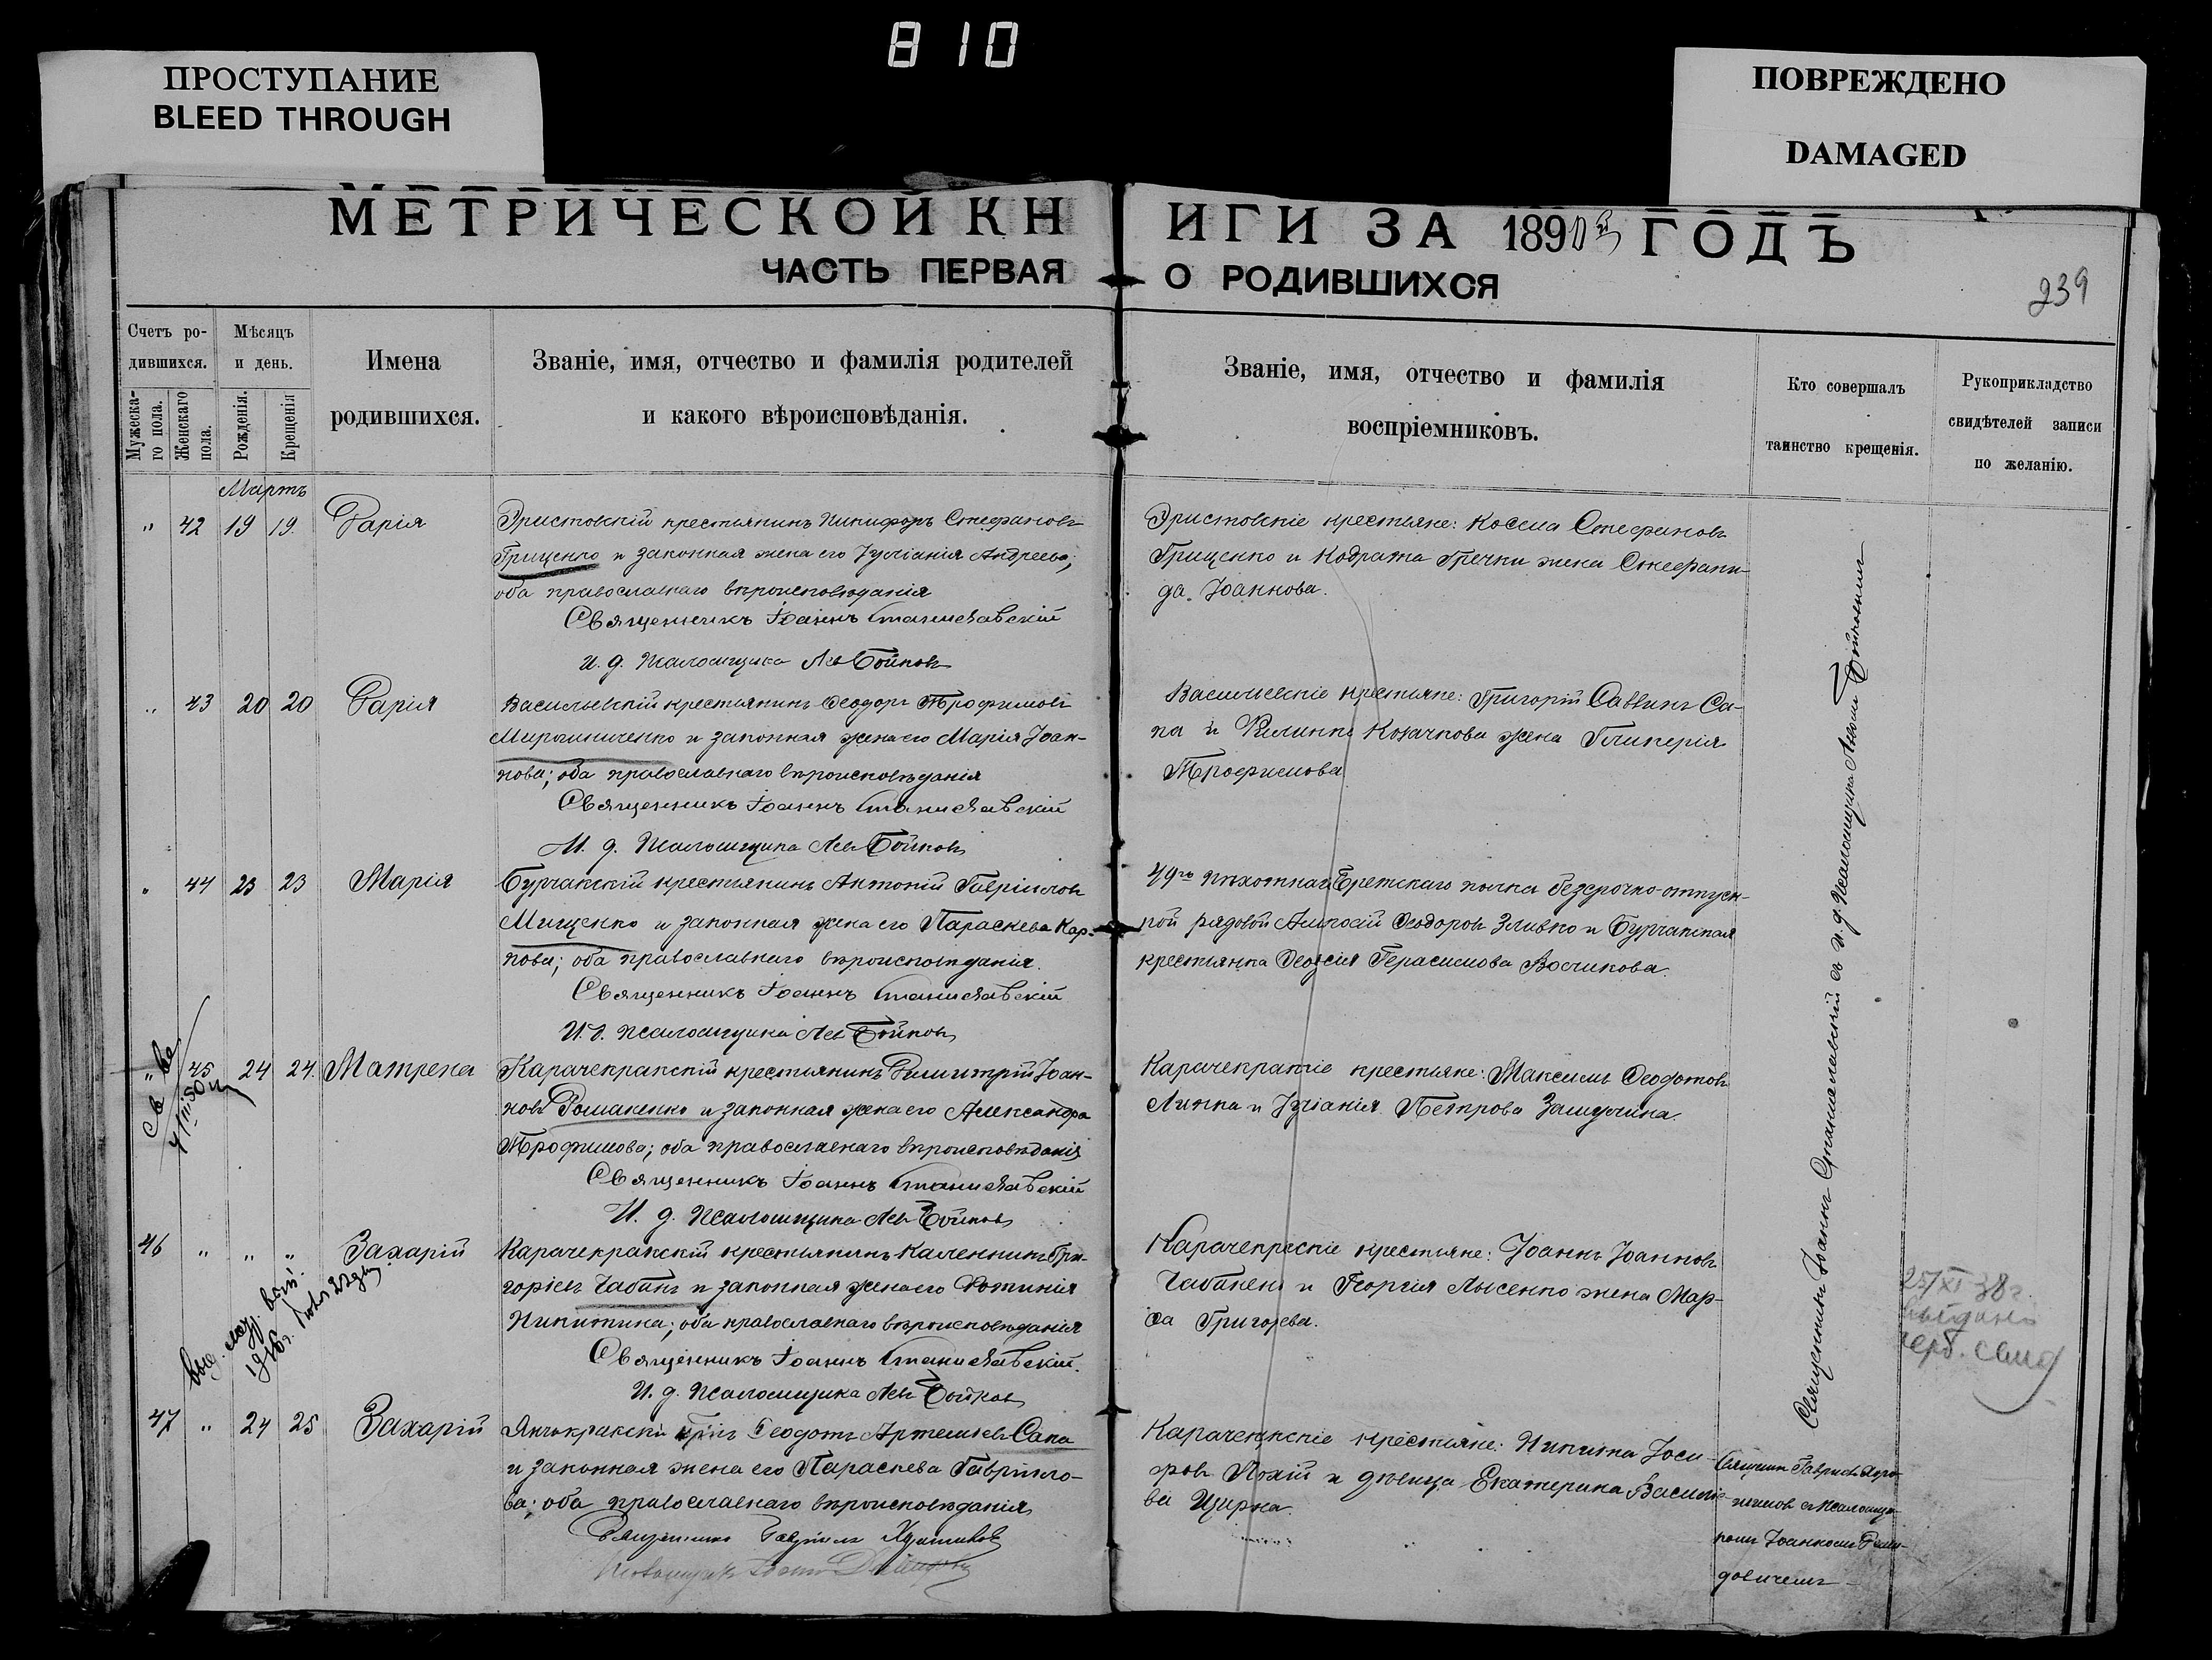 810
ПРОСТУПАНИЕ
BLEED THROUGH
ПОВРЕЖДЕНО
DAMAGED
МЕТРИЧЕСКОЙ КНИГИ ЗА 1893 ГОДЪ
ЧАСТЬ ПЕРВАЯ О РОДИВШИХСЯ
239
Счетъ ро-
дившихся.
Мужеска-
го пола.
Женскаго
пола.
Мѣсяцъ
и день.
Рожденія.
Крещенія
Имена
родившихся.
Званіе, имя, отчество и фамилія родителей
и какого вѣроисповѣданія.
Званіе, имя, отчество и фамилія
воспріемниковъ.
Кто совершалъ
таинство крещенія.
Рукоприкладство
свидѣтелей записи
по желанію.
Мартъ
" 42 19 19. Дарія
Эристовскій крестьянинъ Никифоръ Стефановъ
Грищенко и законная жена его Іуліанія Андреева;
оба православнаго вѣроисповѣданія
Священникъ Іоаннъ Станиславскій
И. д. Псаломщика Левъ Бойковъ
Эристовскіе крестьяне: Косма Стефановъ
Грищенко и Кодрата Гречки жена Стефани-
да Іоаннова.
" 43 20 20 Дарія
Васильевскій крестьянинъ Ѳеодоръ Трофимовъ
Мирошниченко и законная жена его Марія Іоан-
нова; оба православнаго вѣроисповѣданія
Священникъ Іоаннъ Станиславскій
И. д. Псаломщика Левъ Бойковъ
Васильевскіе крестьяне: Григорій Саввинъ Са-
па и Козачкова жена Гликерія
Трофимова
" 44 23 23 Марія
Бурчакскій крестьянинъ Антоній Гавріиловъ
Мищенко и законная жена его Параскева Кар-
пова; оба православнаго вѣроисповѣданія.
Священникъ Іоаннъ Станиславскій
И. д. Псаломщика Левъ Бойковъ
49го пѣхотнаго Бретскаго полка безсрочно-отпуск-
ной рядовой Алексій Ѳеодоровъ Зливко и Бурчакская
крестьянка Ѳеодосія Герасимова
" 45 24 24. Матрена
Карачекракскій крестьянинъ Димитрій Іоан-
новъ Романенко и законная жена его Александра
Трофимова; оба православнаго вѣроисповѣданія
Священникъ Іоаннъ Станиславскій
И. д. Псаломщика Левъ Бойковъ
Карачекракскіе крестьяне: Максимъ Ѳеодотовъ
Линка и Іуліанія Петрова
46 " " " Захарій
Карачекракскій крестьянинъ Каленникъ Гри-
горіевъ Чабанъ и законная жена его Фотинія
Никитина; оба православнаго вѣроисповѣданія
Священникъ Іоаннъ Станиславскій.
И. д. Псаломщика Левъ Бойковъ
Карачекракскіе крестьяне: Іоаннъ Іоанновъ
Чабаненко и Георгія Лысенко жена Мар-
фа Григорьева.
25/XI 38 г.
выдано
47 " 24 25 Захарій
Янчокракскій кр-нъ Ѳеодотъ Артемьевъ Сапа
и законная жена его Параскева Гаврило-
ва; оба православнаго вѣроисповѣданія
Священникъ Гавріилъ
Карачекракскіе крестьяне: Никита Іоси-
фовъ Лохій и дѣвица Екатерина Василіе-
ва Цирка.
Священникъ Іоаннъ Станиславскій съ и. д. Псаломщика Львомъ Бойковымъ